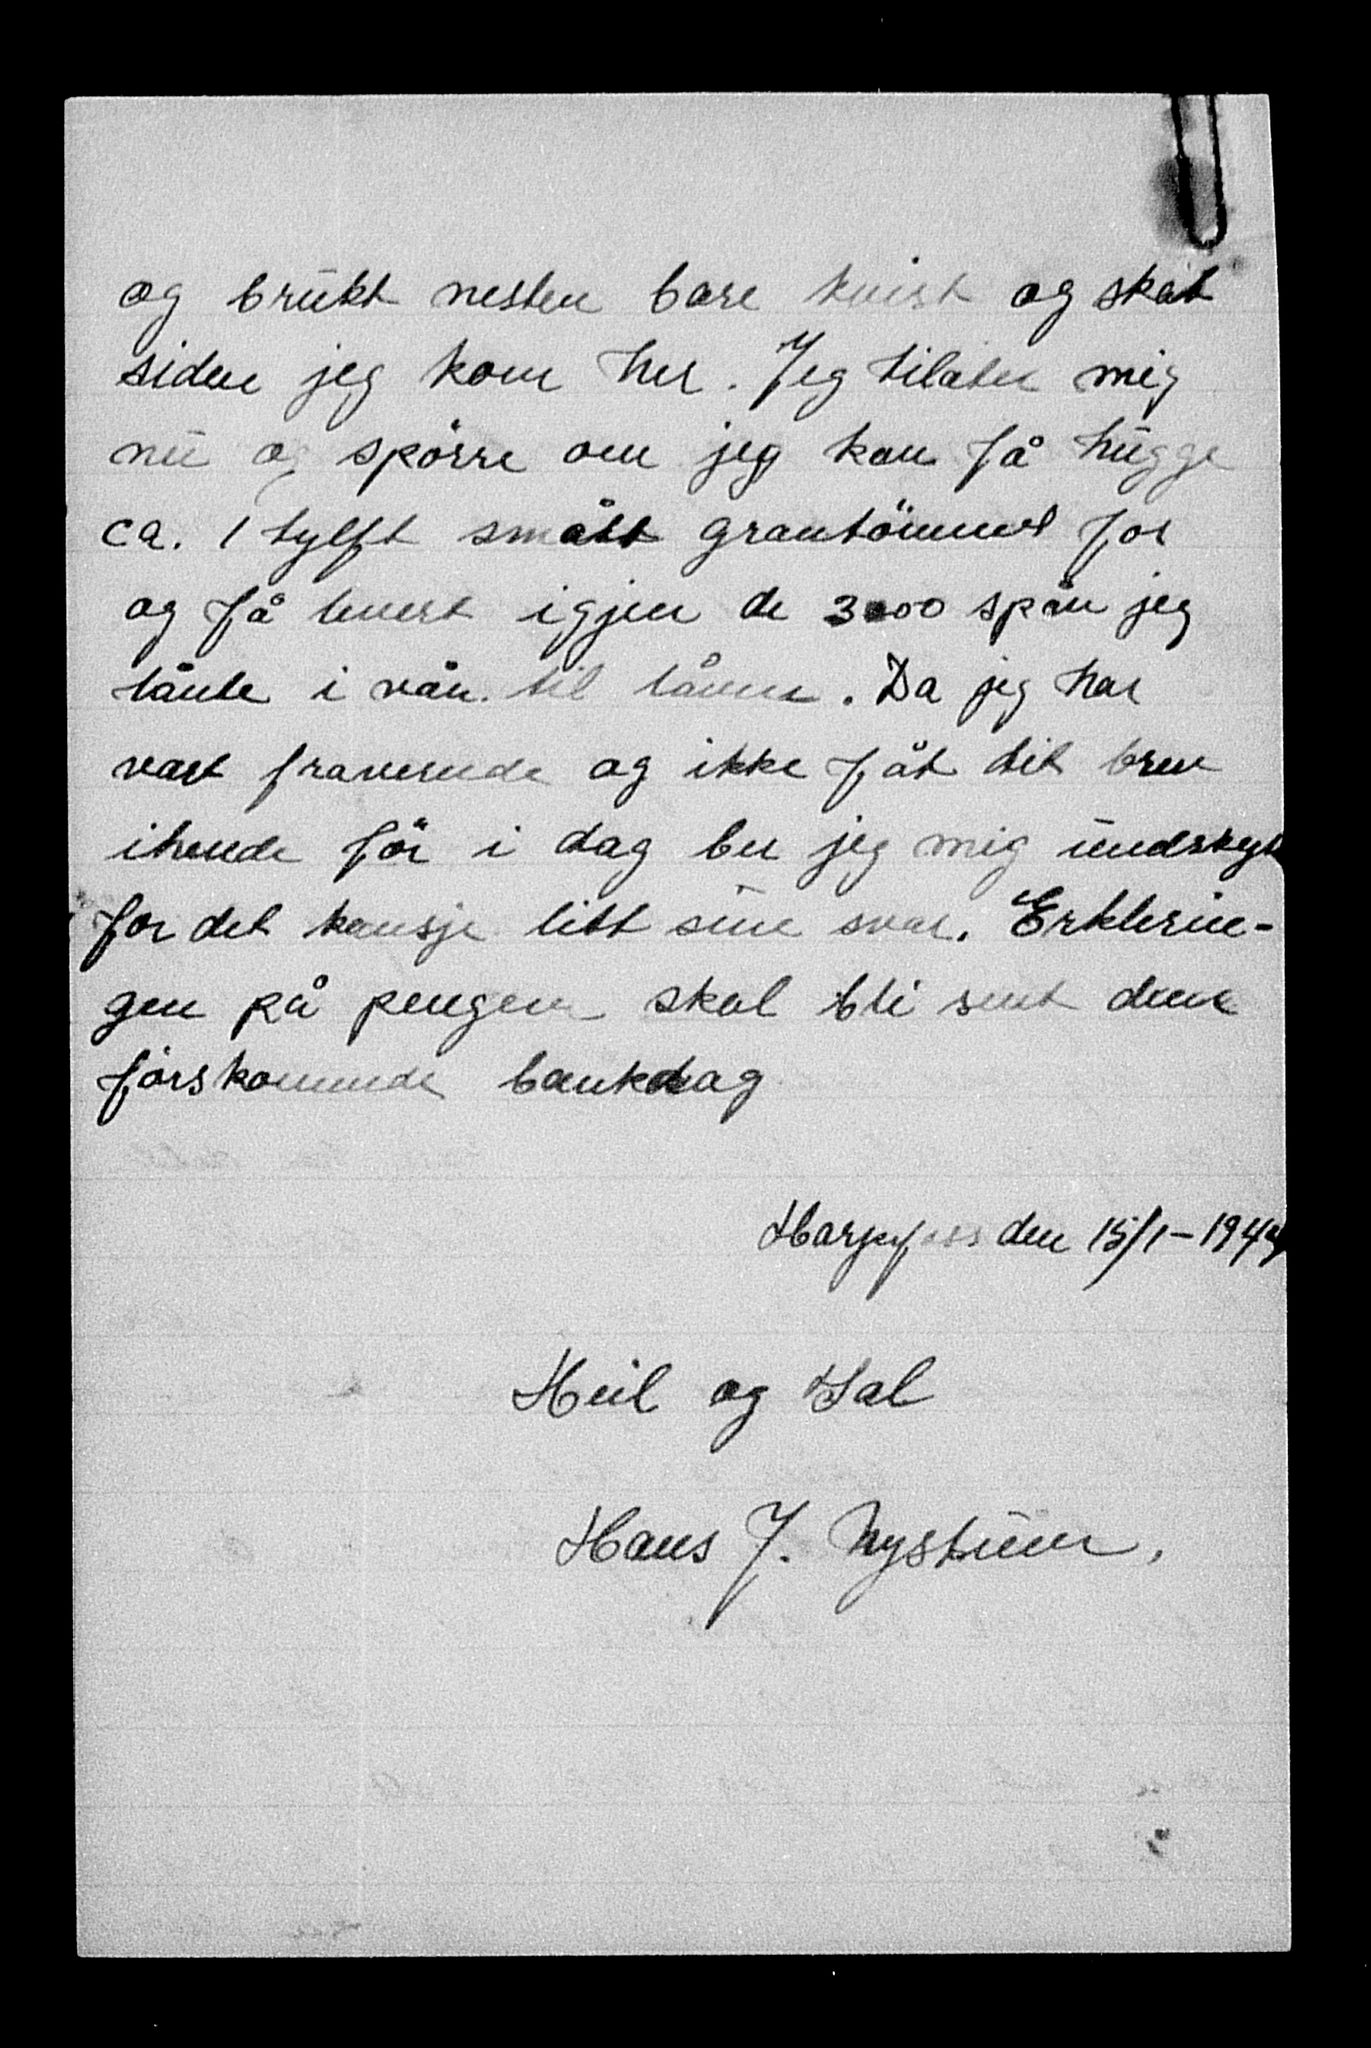 og brukt nesten bare kvist og skat
siden jeg kom her. Jeg tilater mig
nu og spörre om jeg kan få hugge
ca. 1 tylft smått grantömmer for
og få levert igjen de 3000 spån jeg
lånte i vår til låven. Da jeg har
vært fraverende og ikke fåt dit brev
ihende för i dag ber jeg mig undskyt
for det kansje litt sene svar. Erklerin-
gen på pengene skal bli sent denne
förskommende bankdag
Harpefoss den 15/1-1944
Heil og Sal
Hans J. Nystuen.